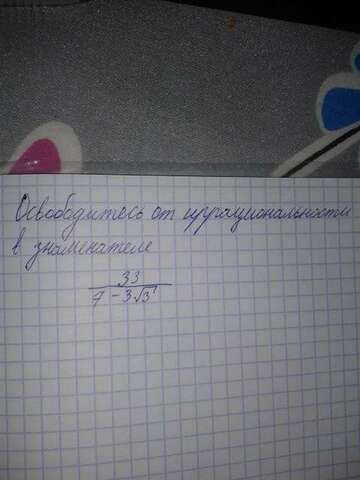 Освободитесь от иррациональности
в знаменателе
33
7 - 3√3